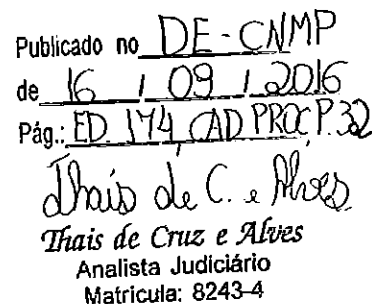 Publicado no DE - CNMP
de 16 / 09 / 2016
Pág.: ED. 174, CAD PROC P. 32
Thais de C. e Alves
Thais de Cruz e Alves
Analista Judiciário
Matricula: 8243-4